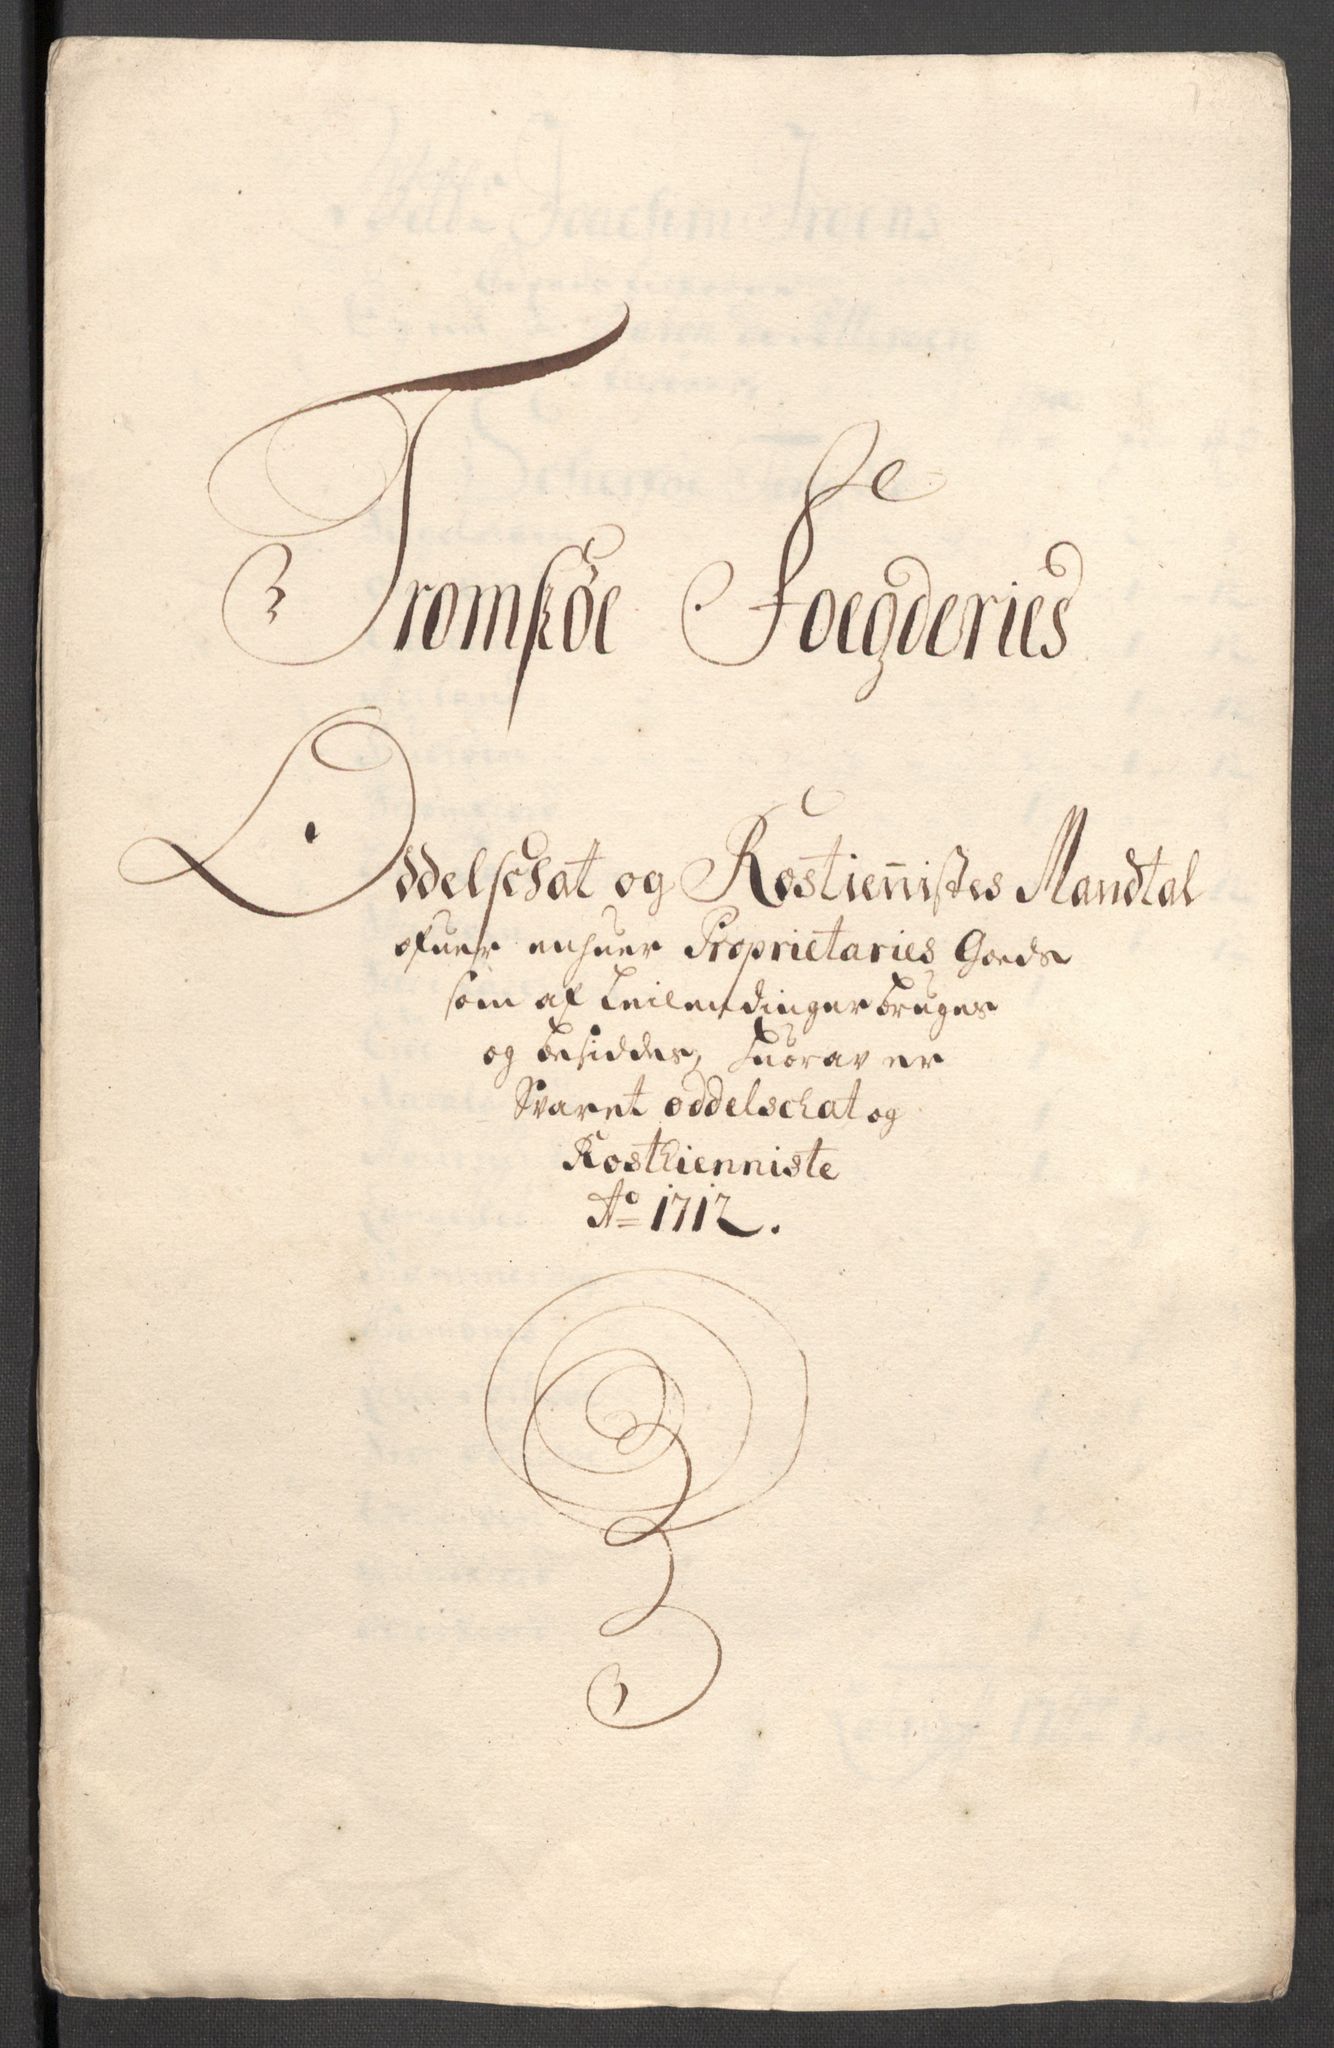 Tromsøe Foegderies
Oddelschat og Rostiennistes Mandtal
ofuer enhuer Proprietaries Goeds
som af Leilendinger bruges
og besiddes, huorav er
Svaret oddelschat og
Rosthienniste
Ao 1712.